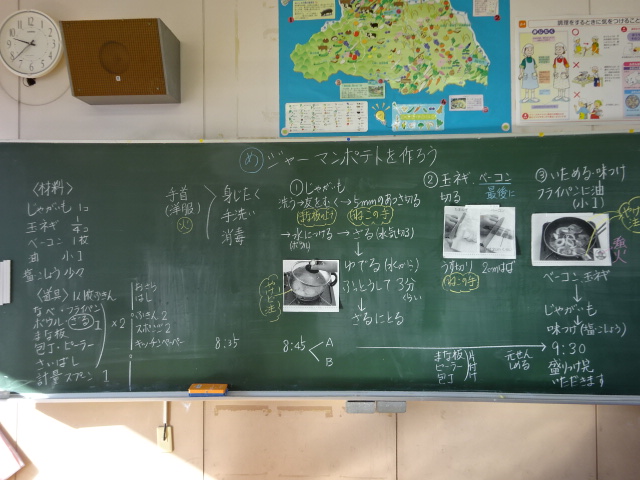 調理をするときに気をつけること
め ジャーマンポテトを作ろう
〈材料〉
じゃがいも 1コ
玉ネギ 1/4コ
ベーコン 1枚
油 小1
塩こしょう 少々
〈道具〉
なべ・フライパン
ボウル ざる 1
まな板
包丁・ピーラー
さいばし
計量スプーン 1
×2
おさら
はし
ふきん 2
スポンジ 2
キッチンペーパー
手首
(洋服)
火
身じたく
手洗い
消毒
8:35
① じゃがいも
洗う→皮をむく→5mmのあつさ切る
ねこの手
→水につける→ざる(水気切る)
(ボウル)
ゆでる(水から)
ふっとうして 3分
ぐらい
ざるにとる
8:45
A
B
② 玉ネギ、ベーコン
切る
最後に
うす切り 2cmはば
ねこの手
まな板
ピーラー
包丁
片付
元せん
しめる
③ いためる・味つけ
フライパンに油
(小1)
ベーコン・玉ネギ
じゃがいも
味つけ(塩こしょう)
9:30
いただきます